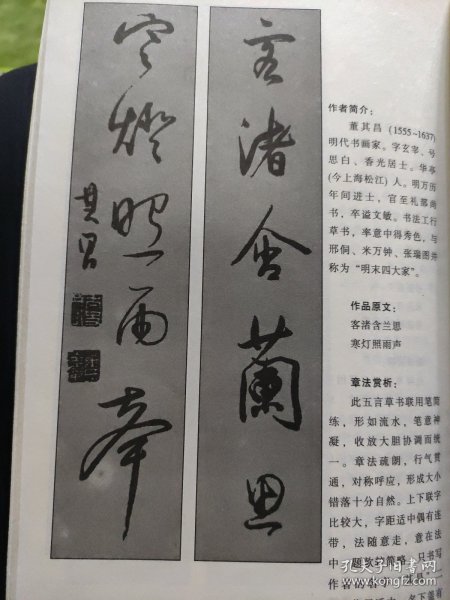 客渚含蘭思
寒燈照雨聲
其昌
作者简介：
董其昌 (1555~1637)
明代书画家。字玄宰、号
思白、香光居士。华亭
(今上海松江) 人。明万历
年间进士，官至礼部尚
书，卒谥文敏。书法工行
草书，率意中得秀色，与
邢侗、米万钟、张瑞图并
称为“明末四大家”。
作品原文：
客渚含兰思
寒灯照雨声
章法赏析：
此五言草书联用笔简
练，形如流水，笔意神
凝，收放大胆协调而统
一。章法疏朗，行气贯
通，对称呼应，形成大小
错落十分自然。上下联字
比较大，字距适中偶有连
带，法随意走，意在法
中。题款较简略，只书写
作者的名字
孔夫子旧书网